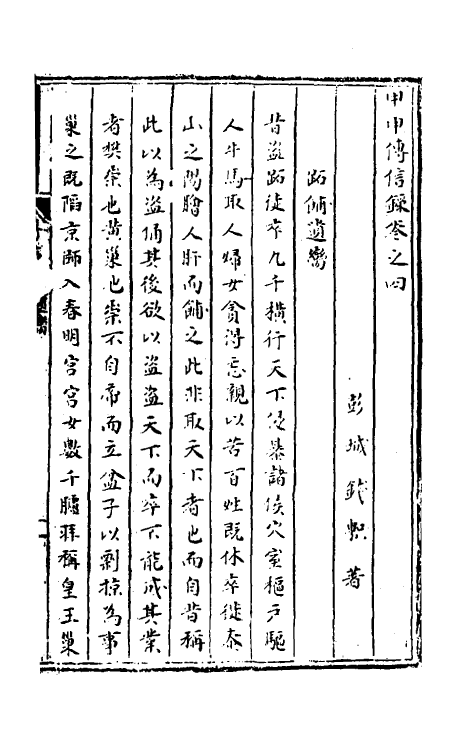 甲申傳信錄卷之四
彭城錢𪸩著
跖俑遺臠
昔盜跖徒卒九千橫行天下侵暴諸侯穴室樞戶驅
人牛馬取人婦女貪得忘親以苦百姓既休卒徒泰
山之陽膾人肝而餔之此非取天下者也而自昔稱
此以為盜俑其後欲以盜盜天下而卒不能成其業
者樊崇也黃巢也崇不自帝而立盆子以剽掠為事
巢之既陷京師入春明宮宮女數千臚拜稱皇王巢